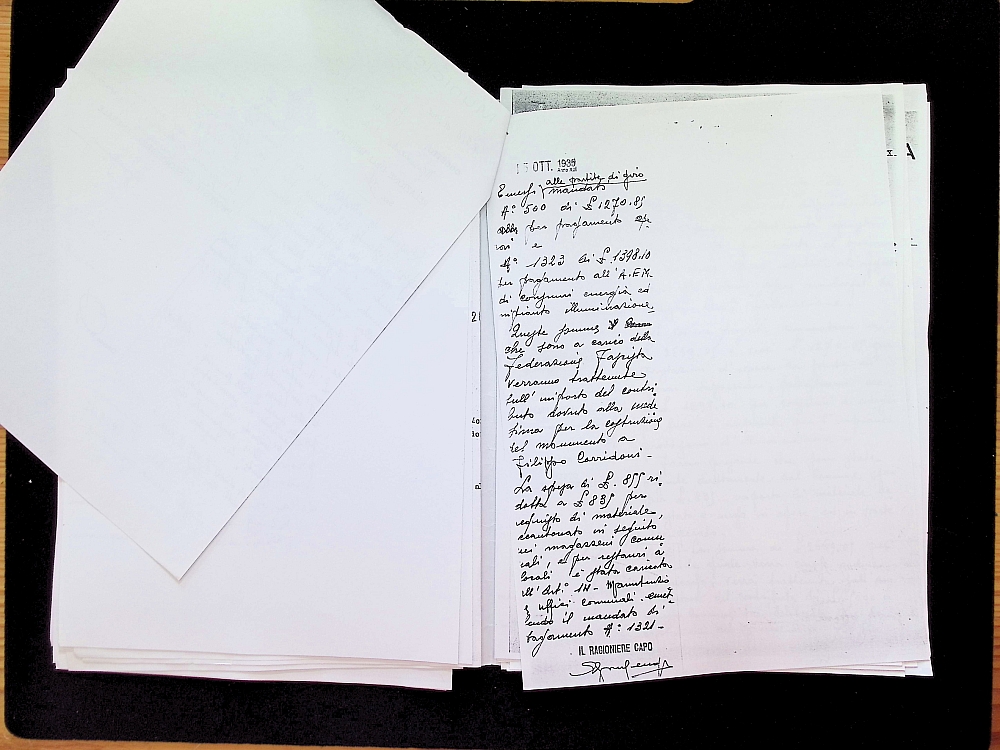 OTT. 1935
alle partite di giro
Emessi mandato
N° 500 di £. 1270.85
per pagamento
e
N° 1323 di £. 1398.10
per pagamento all'A.E.M.
di consumi energia ed
impianto illuminazione.
Queste somme
che sono a carico della
Federazione Fascista
verranno trattenute
sull'importo del contri
buto dovuto alla mede
sima per la costruzione
del monumento a
Filippo Corridoni -
La spesa di £. 855 ri
dotta a £ 835 per
acquisto di materiale,
accantonato in seguito
nei magazzeni comu
nali, e per restauri a
locali è stata caricata
all'Art.°
uffici comunali emet
tendo il mandato di
pagamento N° 1321 -
IL RAGIONIERE CAPO
A